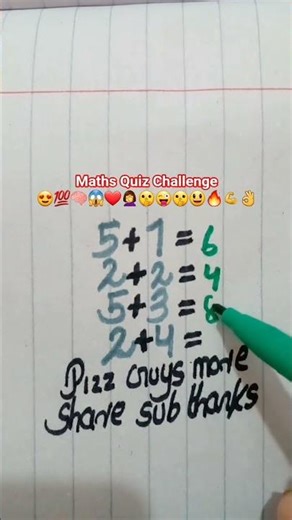 Maths Quiz Challenge
😍💯🧠😱❤️🤦‍♀️🤫😜🤫😃🔥💪👌
5+1=6
2+2=4
5+3=8
2+4=
Pizz Guys more
Share sub thanks